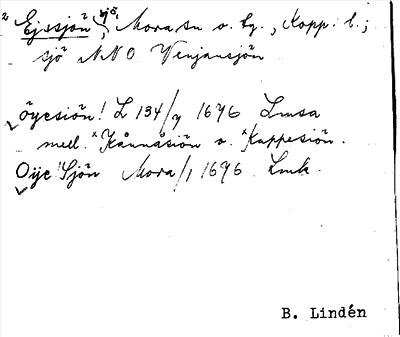 Ejssjön, sjö, Mora sn o. tg., Kopp. l.;
sjö NNO Venjansjön
öyesiön! L 134/9 1696 Lmsa
mell. ˣKånnåsiön o. ˣKappesiön.
Oije Sjön Mora/1 1696 Lmk.
B. Lindén